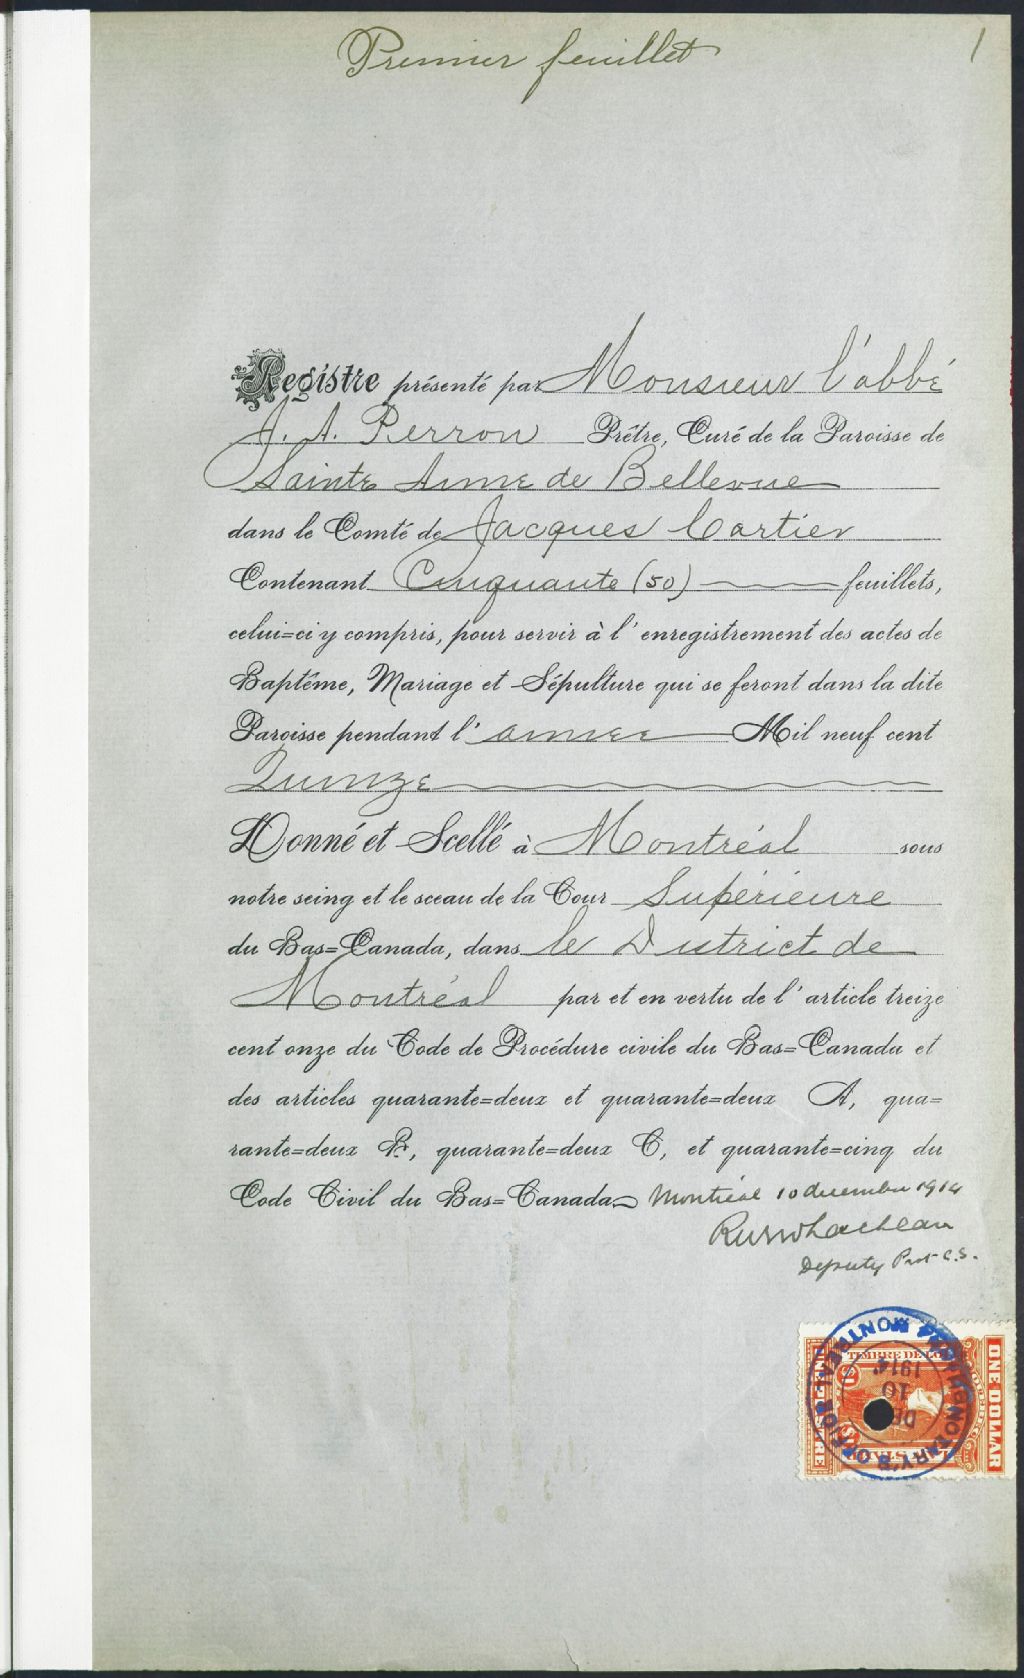 Premier feuillet
1
Registre présenté par Monsieur l'abbé
J. A. Perron Prêtre, Curé de la Paroisse de
Sainte Anne de Bellevue
dans le Comté de Jacques Cartier
Contenant Cinquante (50) feuillets,
celui=ci y compris, pour servir à l'enregistrement des actes de
Baptême, Mariage et Sépulture qui se feront dans la dite
Paroisse pendant l'année Mil neuf cent
Quinze
Donné et Scellé à Montréal sous
notre seing et le sceau de la Cour Supérieure
du Bas=Canada, dans le District de
Montréal par et en vertu de l'article treize
cent onze du Code de Procédure civile du Bas=Canada et
des articles quarante=deux et quarante=deux A, qua=
rante=deux B, quarante=deux C, et quarante=cinq du
Code Civil du Bas=Canada Montréal 10 decembre 1914
Deputy Prot C.S.
TIMBRE DE LOI
ONE DOLLAR
PROTHONOTARY'S OFFICE MONTREAL
DEC
10
1914